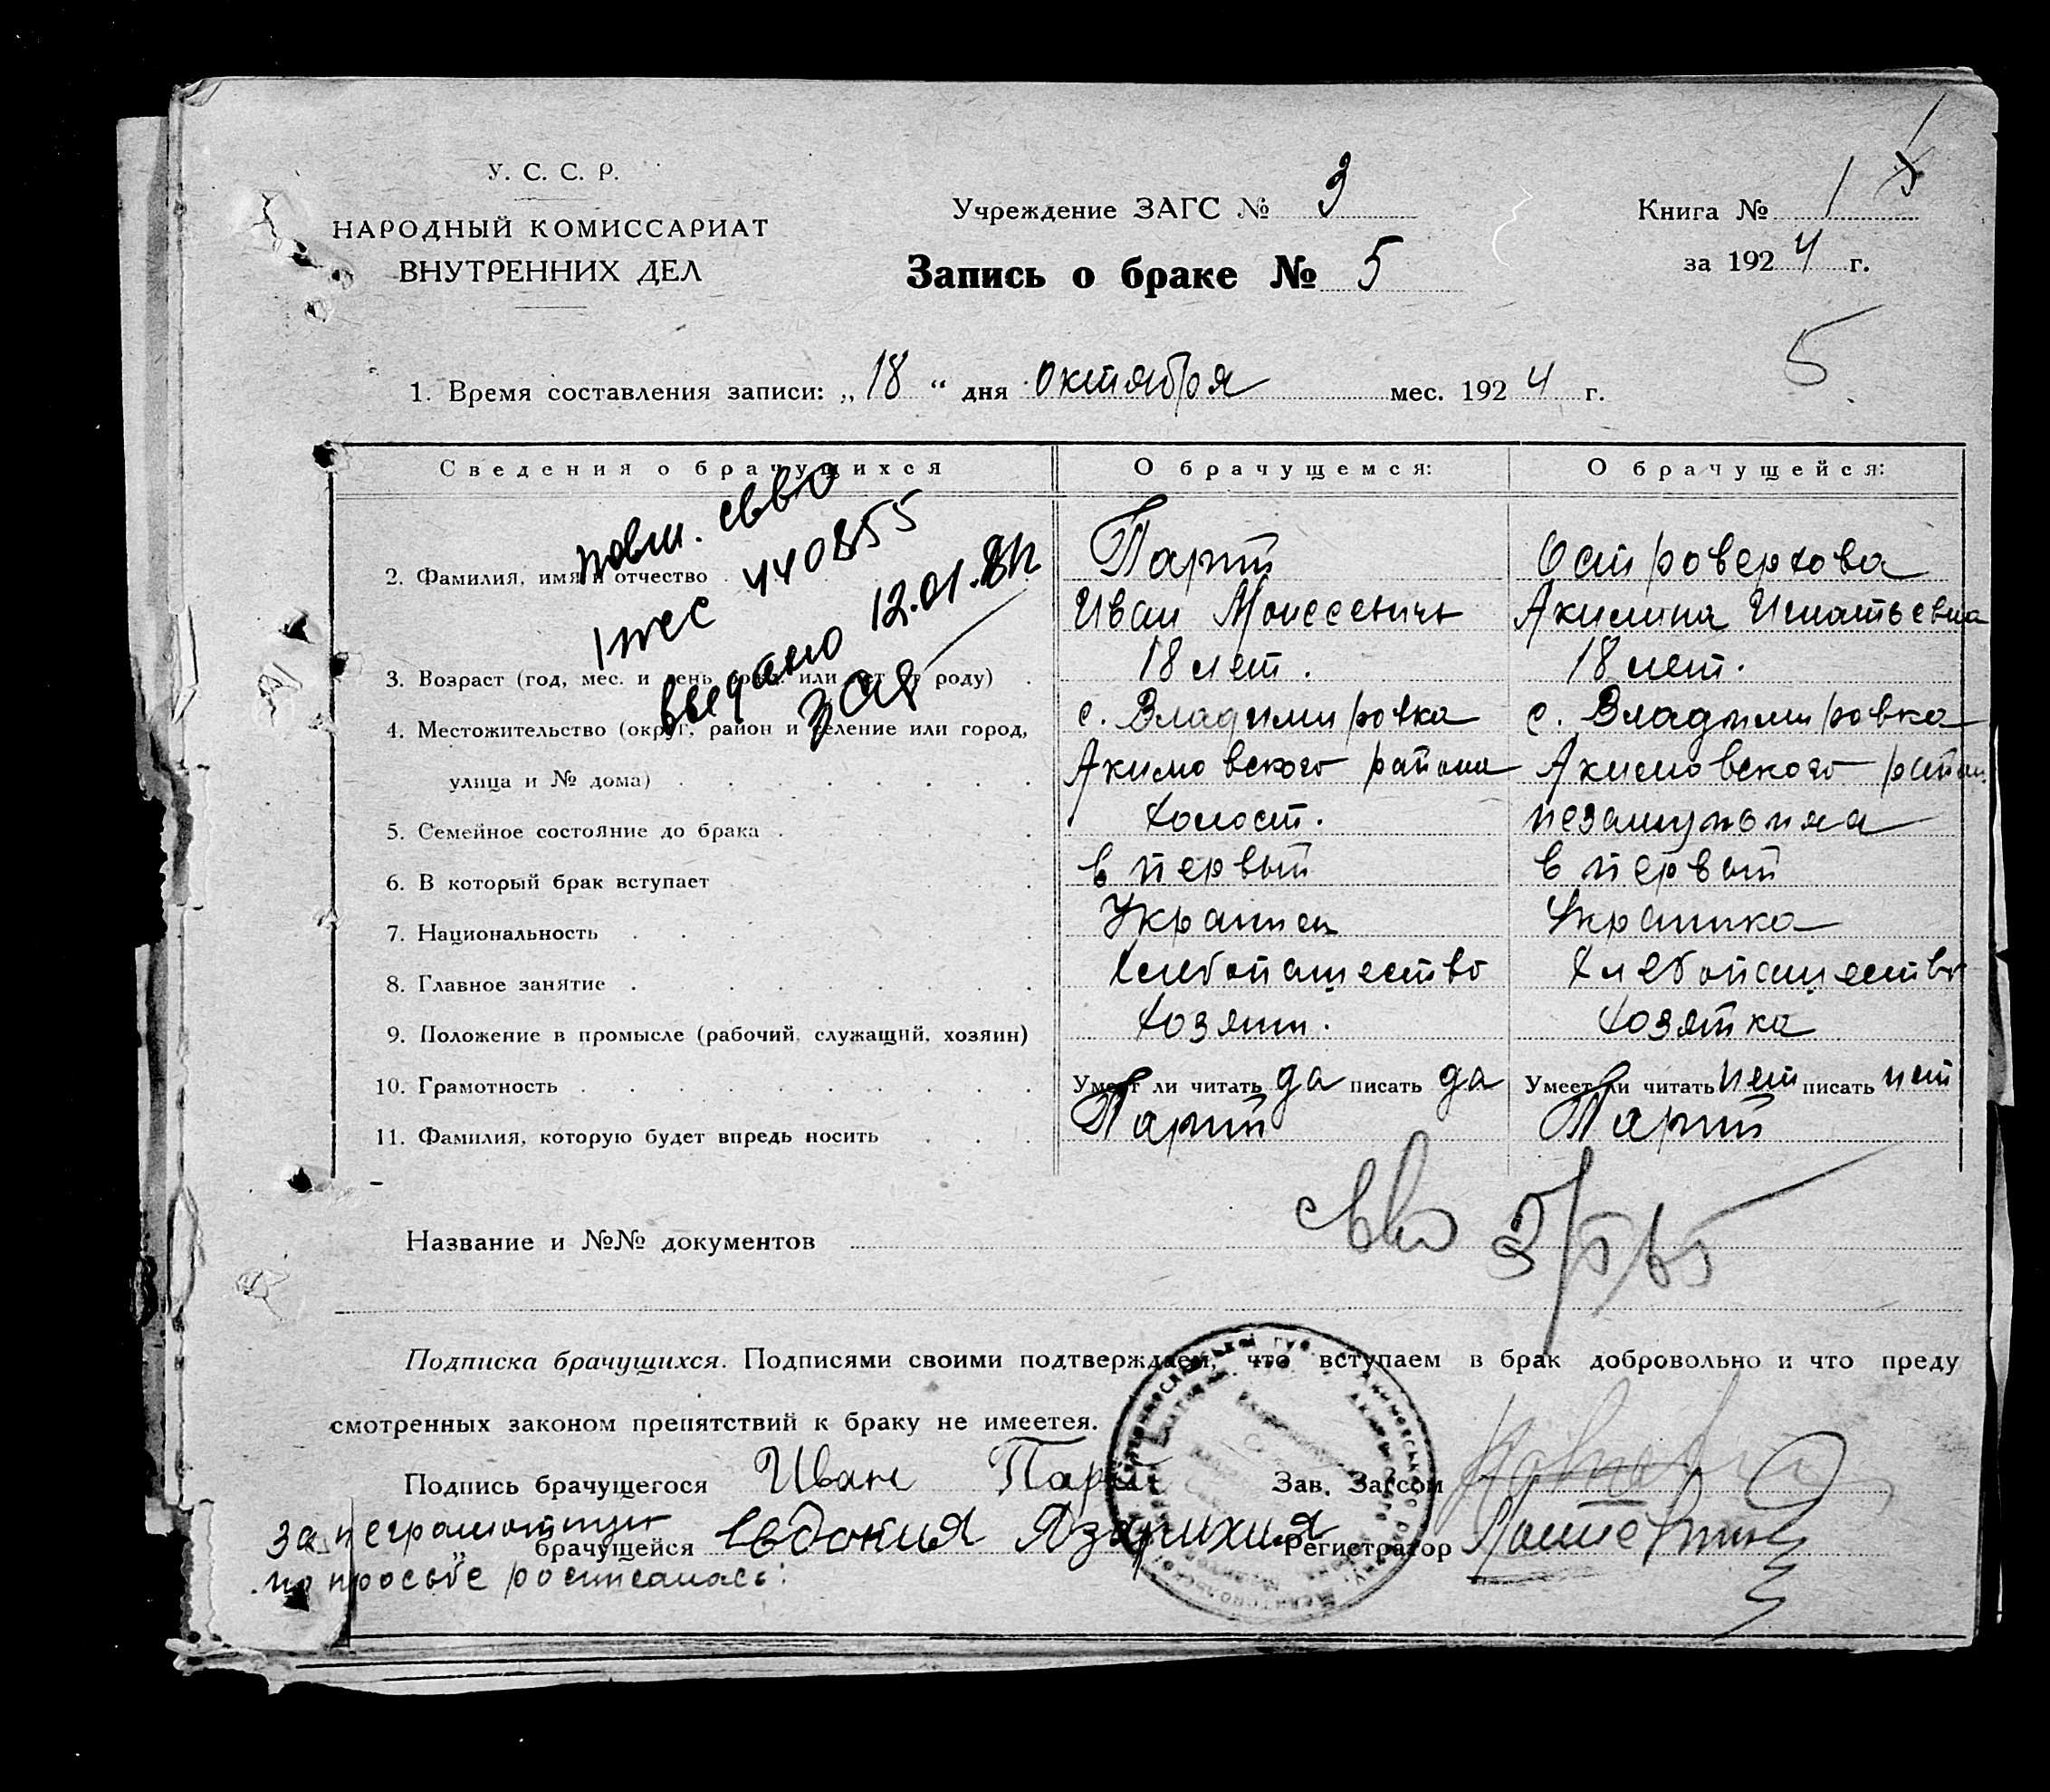 У. С. С. Р.
НАРОДНЫЙ КОМИССАРИАТ
ВНУТРЕННИХ ДЕЛ
Учреждение ЗАГС № 3
Книга № 1
Запись о браке № 5
за 1924 г.
5
1. Время составления записи: „18“ дня октября мес. 1924 г.
Сведения о брачущихся О брачущемся: О брачущейся:
повт. св-во
440855
выдано 12.01.
2. Фамилия, имя и отчество Парий Островерхова
Иван Моисеевич Акилина Игнатьевна
3. Возраст (год, мес. и день рожд. или лет от роду) 18 лет. 18 лет.
4. Местожительство (округ, район и селение или город, с. Владимировка с. Владимировка
улица и № дома) Акимовского района Акимовского район.
5. Семейное состояние до брака холост. незамужняя
6. В который брак вступает в первый в первый
7. Национальность Украинец Украинка
8. Главное занятие хлебопашество хлебопашество
9. Положение в промысле (рабочий, служащий, хозяин) хозяин. хозяйка
10. Грамотность Умеет ли читать да писать да Умеет ли читать нет писать нет
11. Фамилия, которую будет впредь носить Парий Парий
Название и №№ документов св-во
Подписка брачущихся. Подписями своими подтверждаем, что вступаем в брак добровольно и что преду
смотренных законом препятствий к браку не имеется.
Подпись брачущегося Иван Парий Зав. Загсом
за неграмотную „ брачущейся Евдокия Регистратор
по просьбе росписалась: